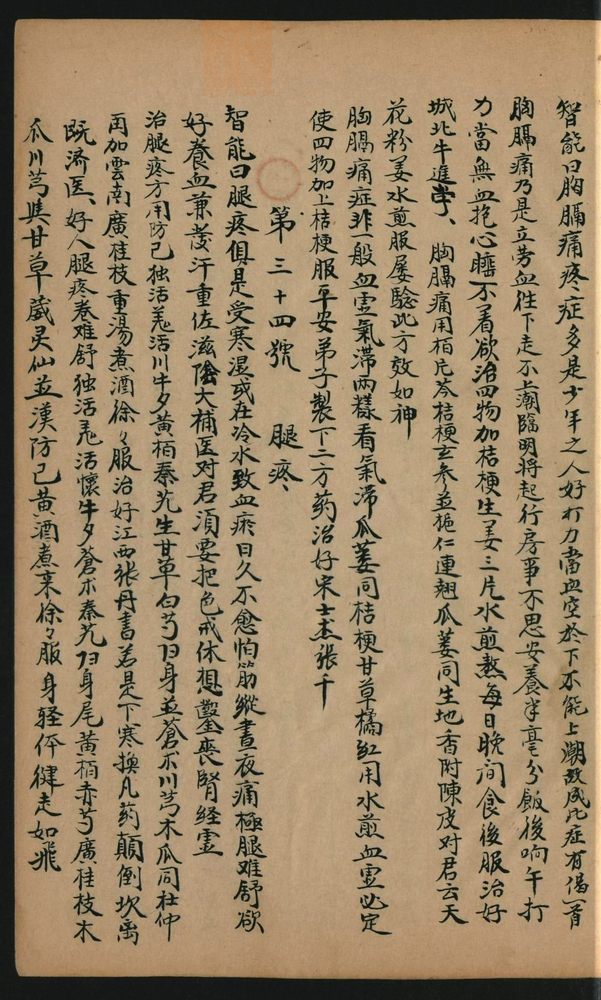 智能曰胸膈痛疼症多是少年之人好打力當血空於下不能上潮故成此症有偈一首
胸膈痛乃是立劳血往下走不上潮臨明将起行房事不思安養半毫分飯後响午打
力當無血抱心睡不着欲治四物加桔梗生姜三片水煎熬每日晚间食後服治好
城北牛進孝、胸膈痛用栢片芩桔梗玄参並梔仁連翹瓜蒌同生地香附陳皮对君云天
花粉姜水煎服屡驗此方效如神
胸膈痛症非一般血虚氣滞兩樣看氣滞瓜蒌同桔梗甘草橘红用水煎血虚必定
使四物加上桔梗服平安弟子製下二方药治好宋士杰張千
第三十四號 腿疼
智能曰腿疼俱是受寒湿或在冷水致血瘀日久不愈怕筋縱晝夜痛極腿难舒欲
好養血兼發汗重佐滋陰大補医对君須要把色戒休想鑿喪腎经虚
治腿疼方用防己独活羌活川牛夕黄栢秦艽生甘草白芍归身並蒼朮川芎木瓜同杜仲
再加雲南廣桂枝重湯煮酒徐々服治好江西張丹書若是下寒換凡药顛倒坎离
既济医、好人腿疼卷难舒独活羌活懷牛夕蒼朮秦艽归身尾黄栢赤芍廣桂枝木
瓜川芎與甘草葳灵仙並漢防己黄酒煮来徐々服身轻体健走如飛